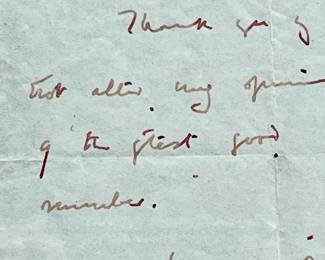 Thank you
not alter my opinion
of the gtest good
number.